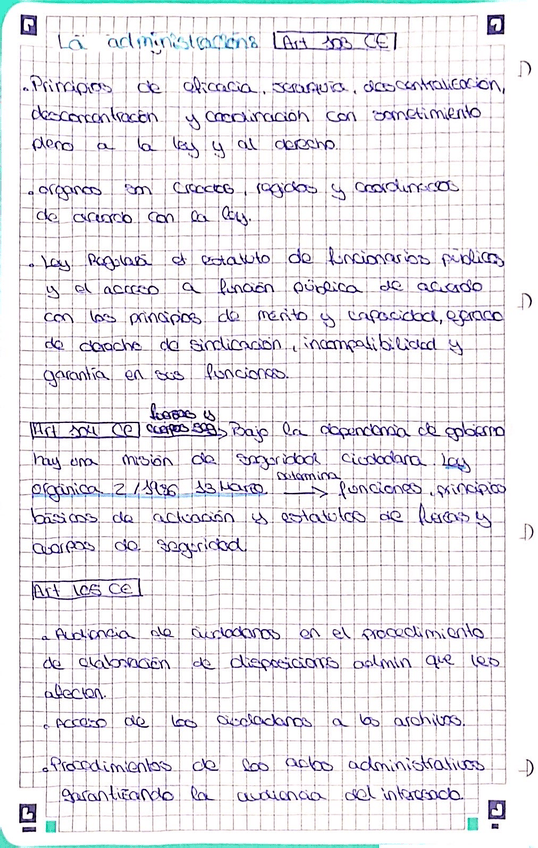 La administración: Art 103 CE
• Principios de eficacia, jerarquía, descentralización,
desconcentración y coordinación con sometimiento
pleno a la ley y al derecho.
• organos son creados, regidos y coordinados
de acuerdo con la ley.
• Ley Regulará el estatuto de funcionarios públicos
y el acceso a función pública de acuerdo
con los principios de merito y capacidad, ejercicio
de derecho de sindicación, incompatibilidad y
garantía en sus funciones.
fuerzas y
Art 104 CE cuerpos seg, Bajo la dependencia de gobierno
hay una misión de seguridad ciudadana Ley
determina
orgánica 2/1986 13 Marzo → funciones, principios
básicos de actuación y estatutos de fuerzas y
cuerpos de seguridad
Art 105 CE
• Audiencia de ciudadanos en el procedimiento
de elaboración de disposiciones admin que les
afecten.
• Acceso de los ciudadanos a los archivos.
• Procedimientos de los actos administrativos
garantizando la audiencia del interesado.